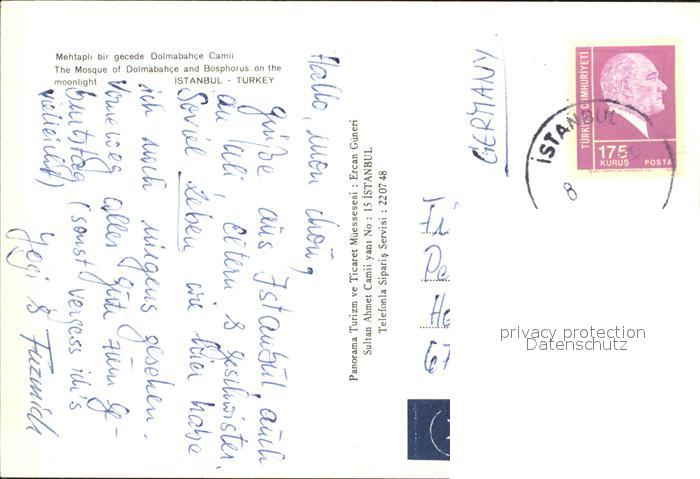 Mehtaplı bir gecede Dolmabahçe Camii
The Mosque of Dolmabahçe and Bosphorus on the
moonlight ISTANBUL - TURKEY
Hallo, mon chou,
Grüße aus Istanbul auch
an Uli, Eltern & Geschwister.
Soviel Leben wie hier habe
ich noch nirgens gesehen.
Vorneweg alles gute zum Ge-
burtstag (sonst vergess ich's
vielleicht)
Yogi &
Panorama Turizm ve Ticaret Müessesesi : Ercan Güneri
Sultan Ahmet Camii yanı No : 15 İSTANBUL
Telefonla Sipariş Servisi : 22 07 48
GERMANY
TÜRKİYE CUMHURİYETİ
175
KURUŞ POSTA
İSTANBUL
8
67
privacy protection
Datenschutz